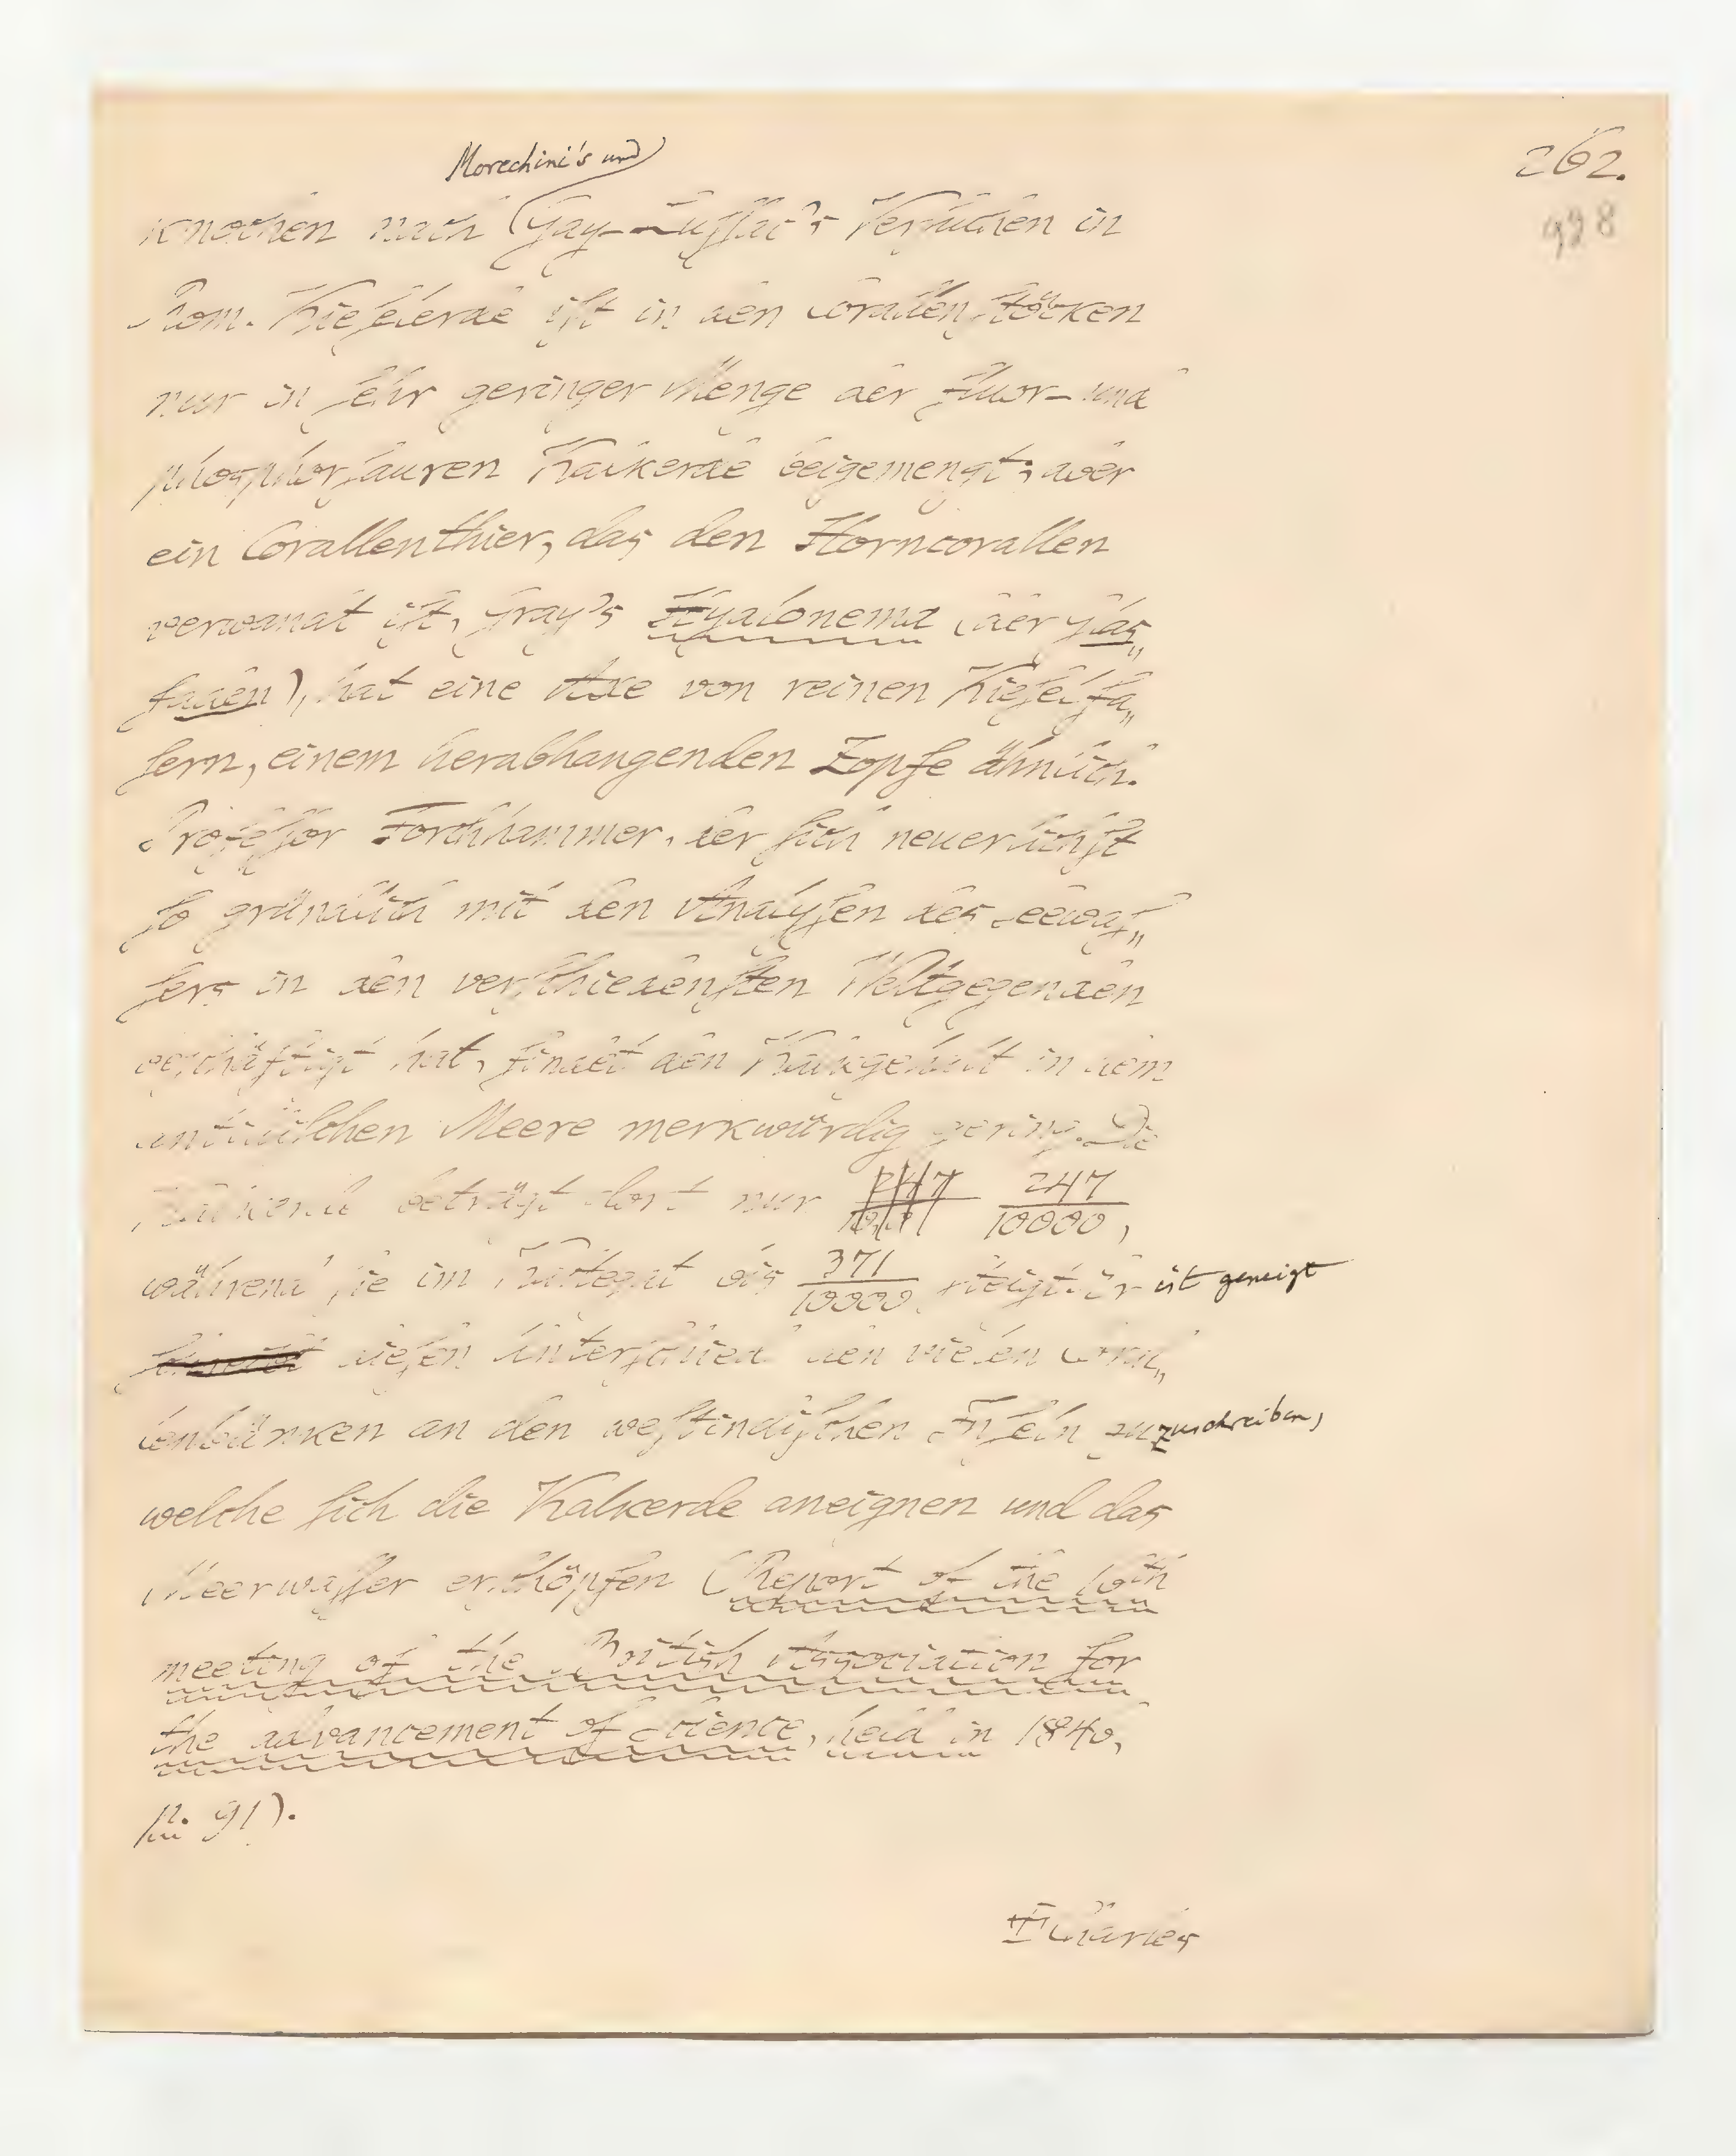 262.
928
Morechini's und
knochen nach Gay-Lussac's Versuchen in
Rom. Kieselerde ist in den Corallenstöcken
nur in sehr geringer Menge der fluor- und
phosphorsauren Kalkerde beigemengt; aber
ein Corallenthier, das den Horncorallen
verwandt ist, Gray's Hyalonema (der Glas„
faden), hat eine Axe von reinen Kieselfa„
sern, einem herabhangenden Zopfe ähnlich.
Professor Forchhammer, der sich neuerlichst
so gründlich mit den Analysen des Seewas„
sers in den verschiedensten Weltgegenden
beschäftigt hat, findet den Kalkgehalt in dem
antillischen Meere merkwürdig gering. Die
Kalkerde beträgt dort nur 247/10000,
während sie im Kattegat bis 371/10000 steigt. Er ist geneigt
diesen Unterschied den vielen Coral„
lenbänken an den westindischen Inseln zuzuschreiben,
welche sich die Kalkerde aneignen und das
Meerwasser erschöpfen (Report of the 16th
meeting of the British Association for
the advancement of Science, held in 1846,
p. 91).
Charles